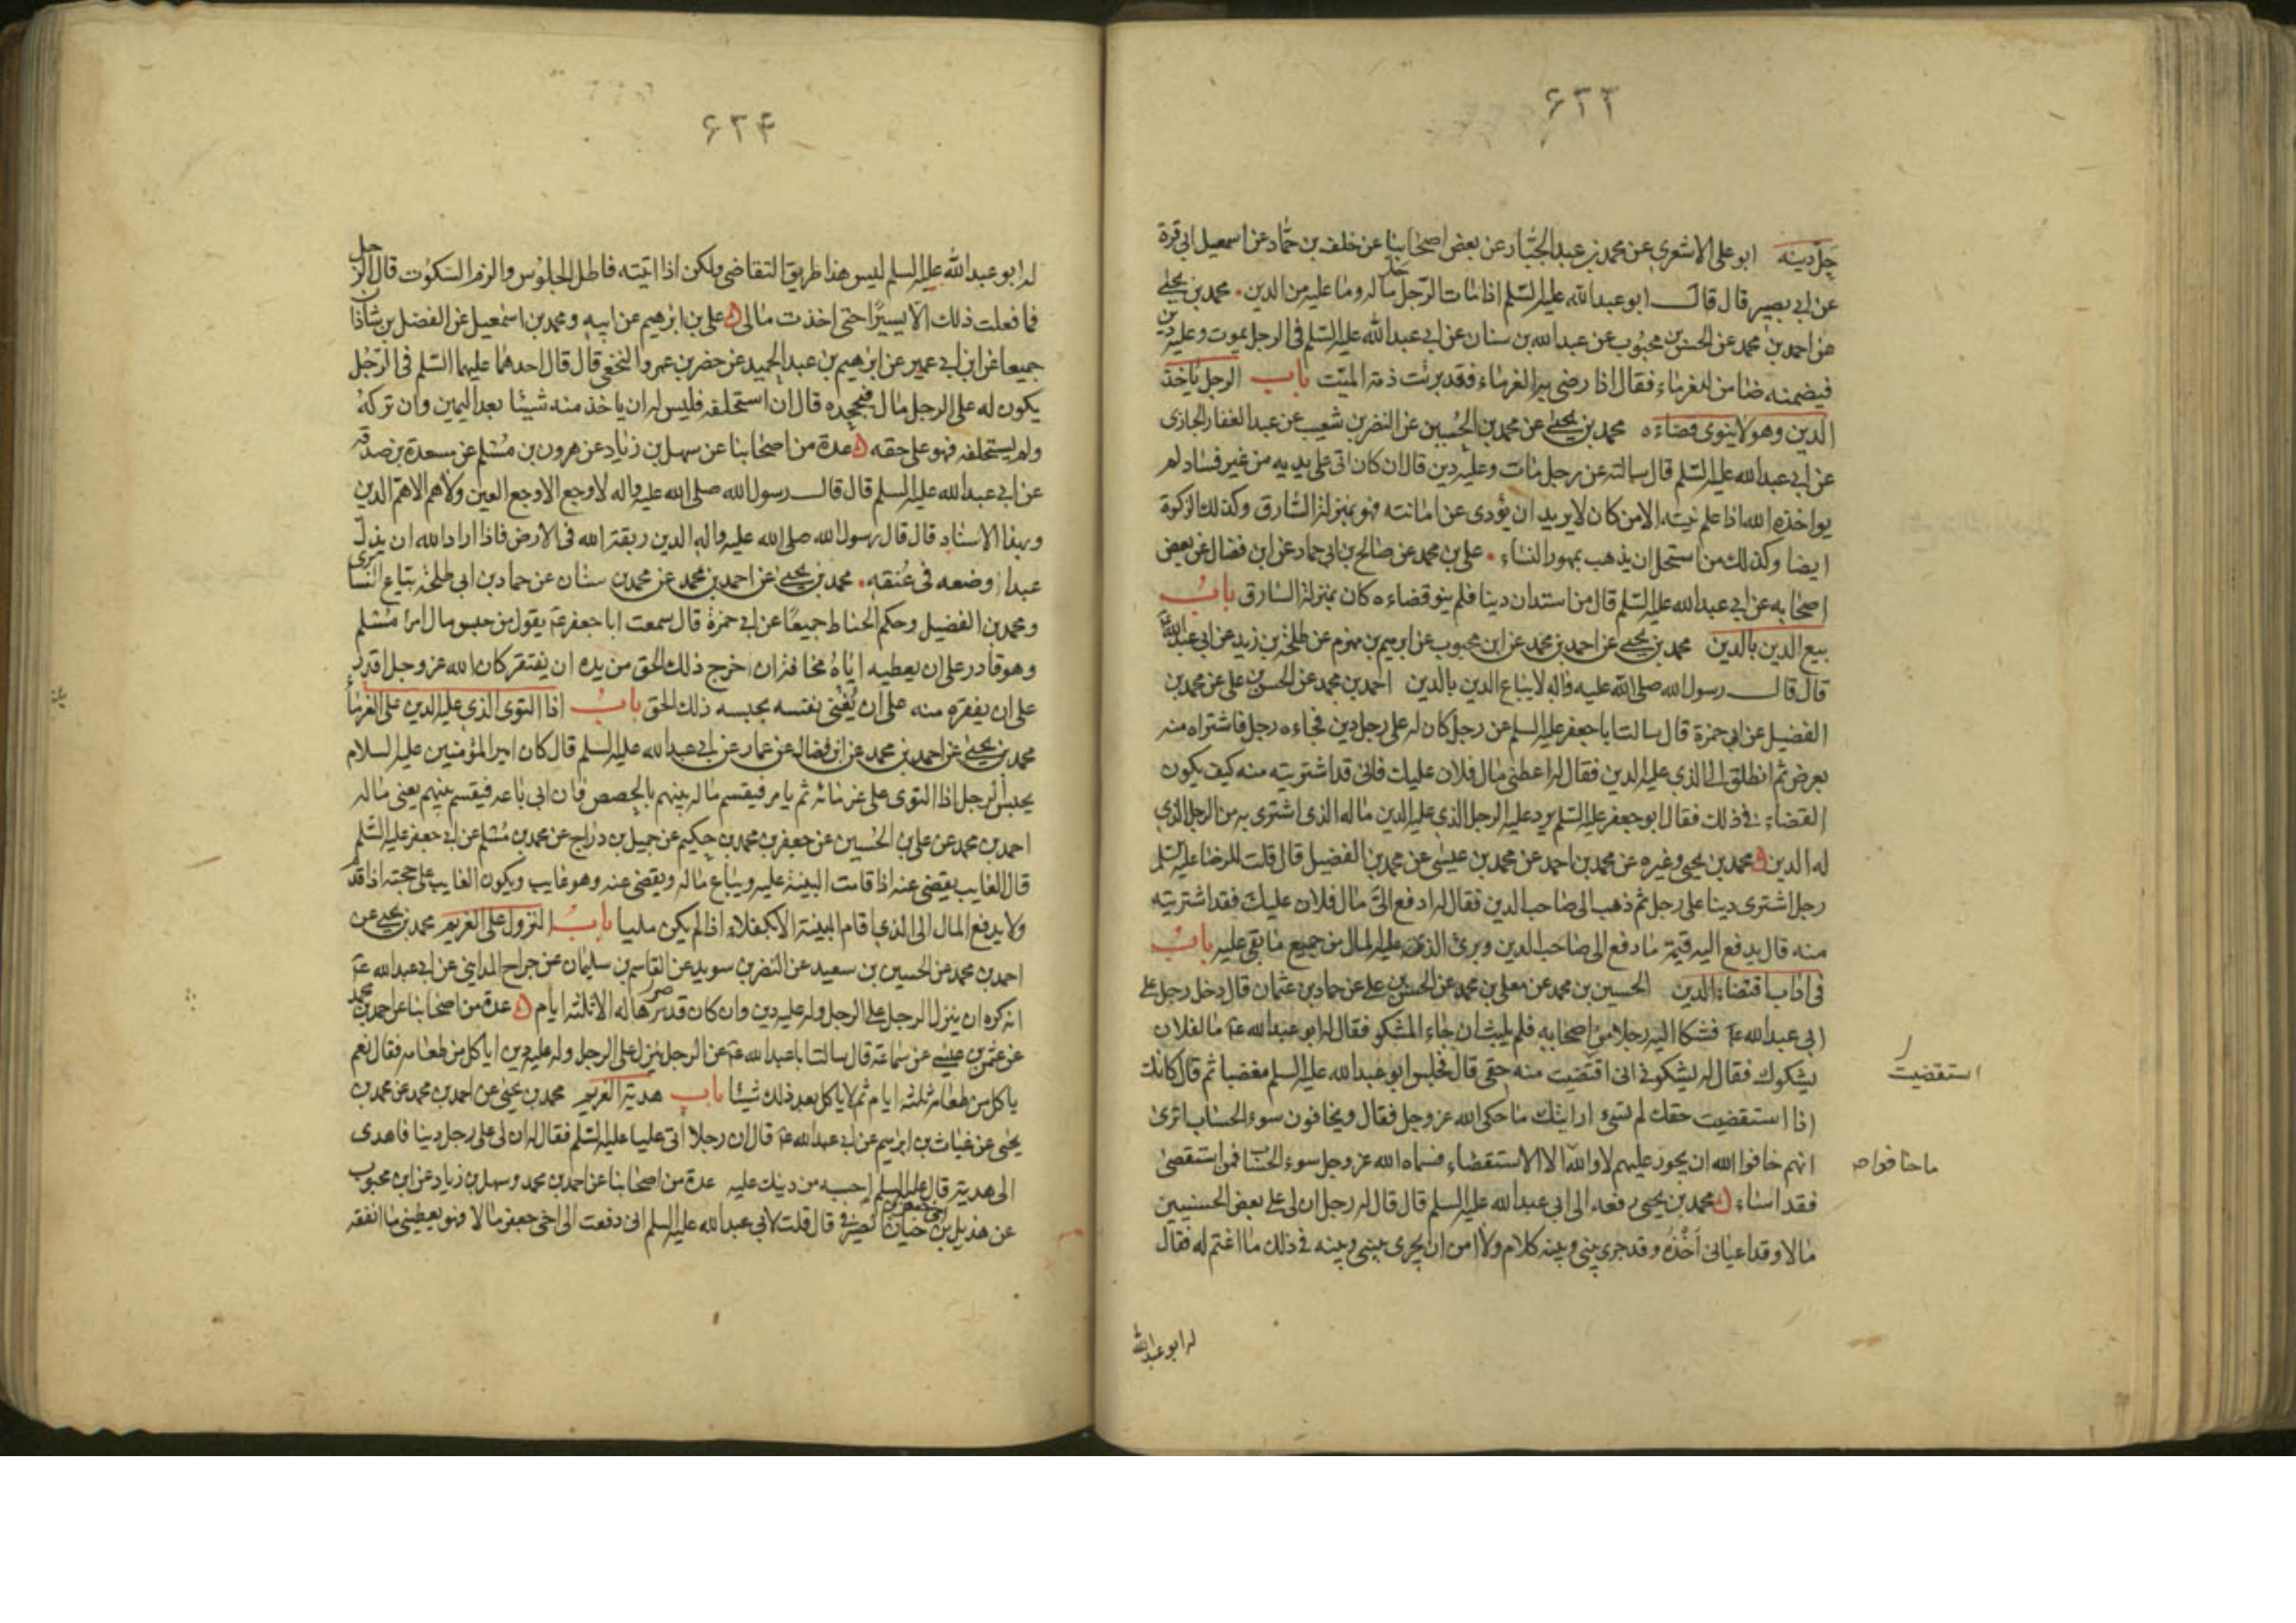 ۶۳۳
حل دينه ابو علی الاشعری عن محمد بن عبد الجبار عن بعض اصحابنا عن خلف بن حماد عن اسمعیل ابی قرة
عن ابی بصیر قال قال ابو عبد الله علیه السلم اذا مات الرجل حل ماله وما علیه من الدین محمد بن یحیی
عن احمد بن محمد عن الحسن بن محبوب عن عبد الله بن سنان عن ابی عبد الله علیه السلم فی الرجل یموت وعلیه دین
فیضمنه ضامن للغرماء فقال اذا رضی به الغرماء فقد برئت ذمة المیت باب الرجل یاخذ
الدین وهو لا ینوی قضاءه محمد بن یحیی عن محمد بن الحسین عن النضر بن شعیب عن عبد الغفار الجازی
عن ابی عبد الله علیه السلم قال سالته عن رجل مات وعلیه دین قال ان کان اتی علی یدیه من غیر فساد لم
یواخذه الله اذا علم نیته الا من کان لا یرید ان یؤدی عن امانته فهو بمنزلة السارق وکذلك الزکوة
ایضا وکذلك من استحل ان یذهب بمهور النساء علی بن محمد عن صالح بن ابی حماد عن ابن فضال عن بعض
اصحابه عن ابی عبد الله علیه السلم قال من استدان دینا فلم ینو قضاءه کان بمنزلة السارق باب
بیع الدین بالدین محمد بن یحیی عن احمد بن محمد عن ابن محبوب عن ابرهیم بن مهزم عن طلحة بن زید عن ابی عبد الله
قال قال رسول الله صلی الله علیه واله لا یباع الدین بالدین احمد بن محمد عن الحسن بن علی عن محمد بن
الفضیل عن ابی حمزة قال سالت ابا جعفر علیه السلم عن رجل کان له علی رجل دین فجاءه رجل فاشتراه منه
بعرض ثم انطلق الی الذی علیه الدین فقال له اعطنی مال فلان علیك فانی قد اشتریته منه کیف یکون
القضاء فی ذلك فقال ابو جعفر علیه السلم یرد علیه الرجل الذی علیه الدین ماله الذی اشتری به من الرجل الذی
له الدین محمد بن یحیی وغیره عن محمد بن احمد عن محمد بن عیسی عن محمد بن الفضیل قال قلت للرضا علیه السلم
رجل اشتری دینا علی رجل ثم ذهب الی صاحب الدین فقال له ادفع الی مال فلان علیك فقد اشتریته
منه قال یدفع الیه قیمة ما دفع الی صاحب الدین وبرئ الذی علیه المال من جمیع ما بقی علیه باب
فی اداب اقتضاء الدین الحسین بن محمد عن معلی بن محمد عن الحسن بن علی عن حماد بن عثمان قال دخل رجل علی
ابی عبد الله عم فشکا الیه رجلا من اصحابه فلم یلبث ان جاء المشکو فقال له ابو عبد الله عم ما لفلان
یشکوك فقال له یشکونی انی اقتضیت منه حقی قال فجلس ابو عبد الله علیه السلم مغضبا ثم قال کانك
استقضیت
اذا استقضیت حقك لم تسئ ارایتك ما حکی الله عز وجل فقال ویخافون سوء الحساب اتری
انهم خافوا الله ان یجور علیهم لا والله الا الاستقضاء فسماه الله عز وجل سوء الحساب فمن استقضی
ما خافوا ص
فقد اساء محمد بن یحیی رفعه الی ابی عبد الله علیه السلم قال قال له رجل ان لی علی بعض الحسنیین
مالا وقد اعیانی اخذه وقد جری بینی وبینه کلام ولا امن ان یجری بینی وبینه فی ذلك ما اغتم له فقال
له ابو عبد الله
۶۳۴
له ابو عبد الله علیه السلم لیس هذا طریق التقاضی ولکن اذا اتیته فاطل الجلوس والزم السکوت قال الرجل
فما فعلت ذلك الا یسیرا حتی اخذت مالی علی بن ابرهیم عن ابیه ومحمد بن اسمعیل عن الفضل بن شاذان
جمیعا عن ابن ابی عمیر عن ابرهیم بن عبد الحمید عن خضر بن عمرو النخعی قال قال احدهما علیهما السلم فی الرجل
یکون له علی الرجل مال فیجحده قال ان استحلفه فلیس له ان یاخذ منه شیئا بعد الیمین وان ترکه
ولم یستحلفه فهو علی حقه عدة من اصحابنا عن سهل بن زیاد عن هرون بن مسلم عن مسعدة بن صدقة
عن ابی عبد الله علیه السلم قال قال رسول الله صلی الله علیه واله لا وجع الا وجع العین ولا هم الا هم الدین
وبهذا الاسناد قال قال رسول الله صلی الله علیه واله الدین ربقة الله فی الارض فاذا اراد الله ان یذل
عبدا وضعه فی عنقه محمد بن یحیی عن احمد بن محمد عن محمد بن سنان عن حماد بن ابی طلحة بیاع السابری
ومحمد بن الفضیل وحکم الحناط جمیعا عن ابی حمزة قال سمعت ابا جعفر عم یقول من حبس مال امرا مسلم
وهو قادر علی ان یعطیه ایاه مخافة ان اخرج ذلك الحق من یده ان یفتقر کان الله عز وجل اقدر
علی ان یفقره منه علی ان یغنی نفسه بحبسه ذلك الحق باب اذا التوی الذی علیه الدین علی الغرماء
محمد بن یحیی عن احمد بن محمد عن ابن فضال عن عمار عن ابی عبد الله علیه السلم قال کان امیر المؤمنین علیه السلام
یحبس الرجل اذا التوی علی غرمائه ثم یامر فیقسم ماله بینهم بالحصص فان ابی باعه فیقسم بینهم یعنی ماله
احمد بن محمد عن علی بن الحسین عن جعفر بن محمد بن حکیم عن جمیل بن دراج عن محمد بن مسلم عن ابی جعفر علیه السلم
قال الغایب یقضی عنه اذا قامت البینة علیه ویباع ماله ویقضی عنه وهو غایب ویکون الغایب علی حجته اذا قدم
ولا یدفع المال الی الذی اقام البینة الا بکفلاء اذا لم یکن ملیا باب النزول علی الغریم محمد بن یحیی عن
احمد بن محمد عن الحسین بن سعید عن النضر بن سوید عن القاسم بن سلیمان عن جراح المداینی عن ابی عبد الله عم
انه کره ان ینزل الرجل علی الرجل وله علیه دین وان کان قد صرها له الا ثلثة ایام عدة من اصحابنا عن احمد بن محمد
عن عثمن بن عیسی عن سماعة قال سالت ابا عبد الله عم عن الرجل ینزل علی الرجل وله علیه دین ایاکل من طعامه فقال نعم
یاکل من طعامه ثلثة ایام ثم لا یاکل بعد ذلك شیئا باب هدیة الغریم محمد بن یحیی عن احمد بن محمد عن محمد بن
یحیی عن غیاث بن ابرهیم عن ابی عبد الله عم قال ان رجلا اتی علیا علیه السلم فقال له ان لی علی رجل دینا فاهدی
الی هدیة قال علیه السلم احسبه من دینك علیه عدة من اصحابنا عن احمد بن محمد وسهل بن زیاد عن ابن محبوب
عن هذیل بن حیان اخی جعفر بن حیان الصیرفی قال قلت لابی عبد الله علیه السلم انی دفعت الی اخی جعفر مالا فهو یعطینی ما انفقه